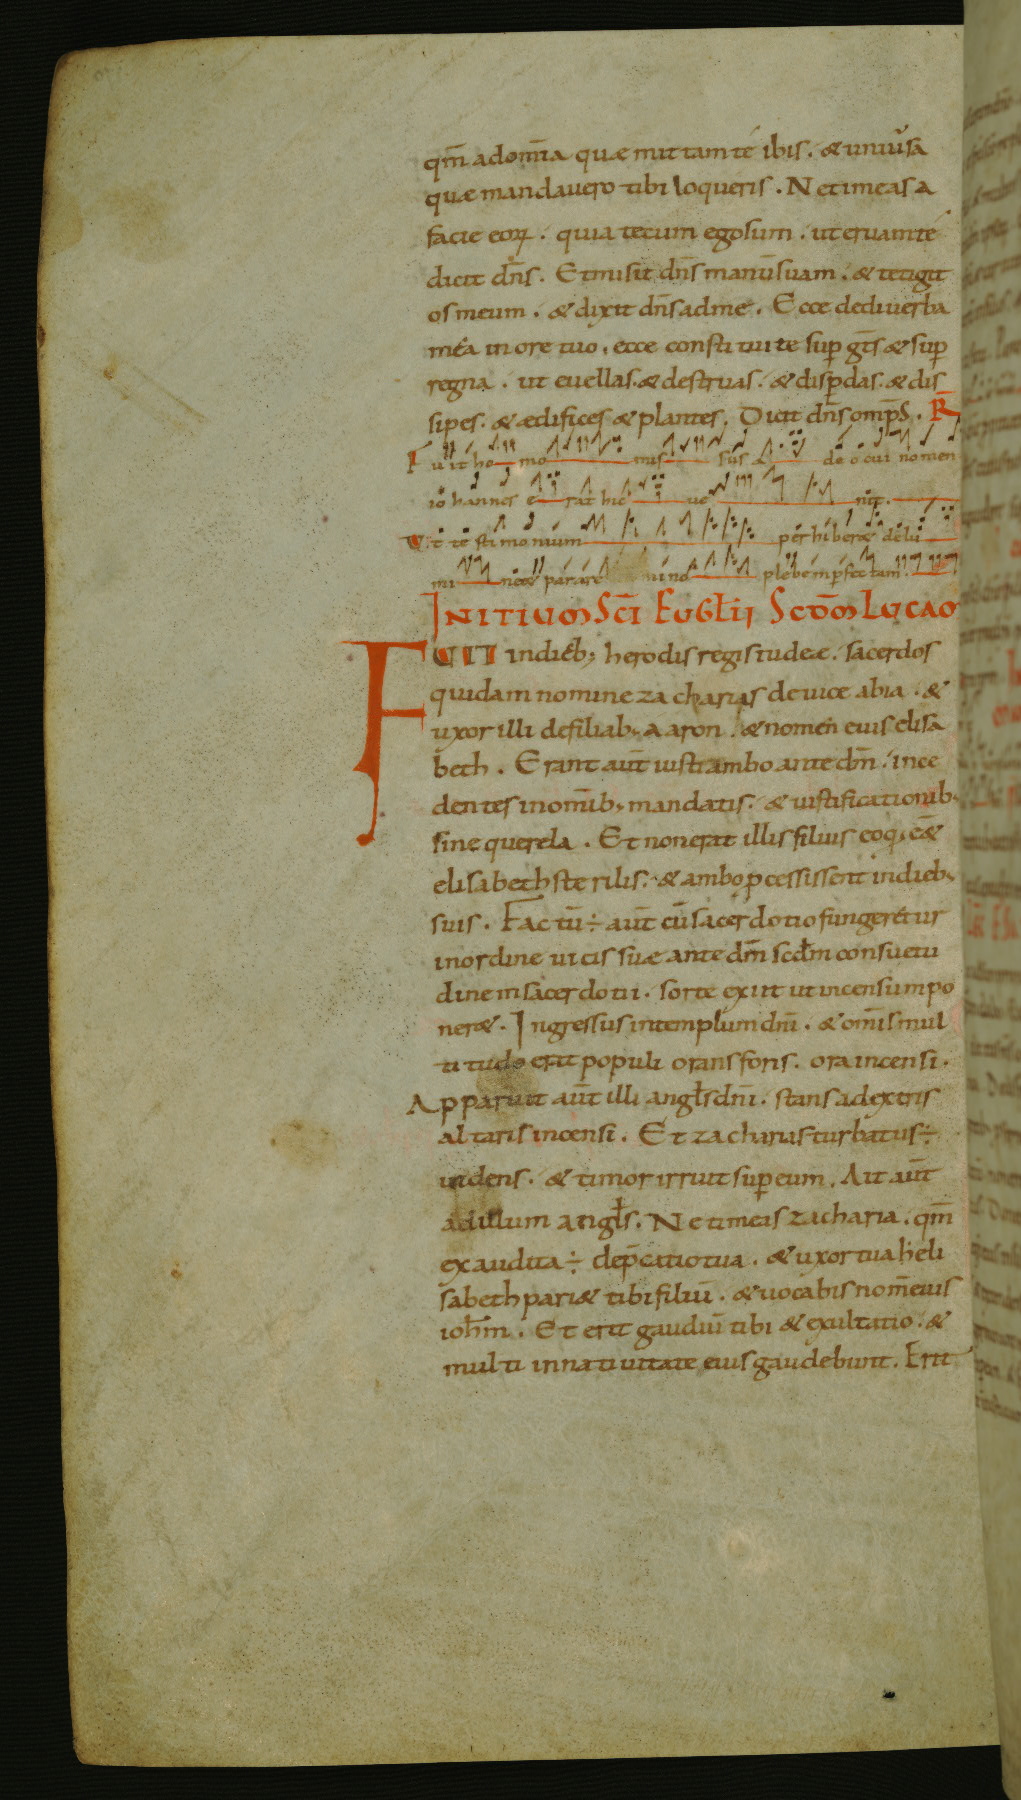 qm̄ adom̄ia quæ mittam te ibis. & uniu͛sa
quæ mandauero tibi loqueris. Netimeas a
facie eoꝝ. quia tecum ego sum. ut eruam te
dicit dn̄s. Et misit dn̄s manū suam. & tetigit
os meum. & dixit dn̄s ad me. Ecce dedi uerba
mea in ore tuo. ecce constitui te sup̄ gēs & sup̄
regna. ut euellas. & destruas. & disp̄das. & dis
sipes. & ædifices & plantes. Dicit dn̄s omp̄s. R̄
Fuit ho mo mis sus a deo cui nomen
iohannes e rat hic ue nit.
V̄t testimonium perhiber& delu
mi ne & parare mino plebem p̄fectam.
INITIUM SC̄I EUGŁII SCD̄M LUCAM
FUIT indieb; herodis regis iudeæ. sacerdos
quidam nomine zacharias de uice abia. &
uxor illi de filiab; aaron. & nomen eius elisa
beth. Erant aūt iusti ambo ante dm̄. ince
dentes in omīb; mandatis. & iustificationib;
sine querela. Et non erat illis filius eoq; eēt
elisabeth sterilis. & ambo p̄cessissent indieb;
suis. Factū ÷ aūt cū sacerdotio fungeretur
inordine uicis suæ ante dm̄ scd̄m consuetu
dinem sacerdotii. sorte exiit ut incensum po
ner&. Ingressus in templum dn̄i. & om̄is mul
titudo erat populi orans foris. ora incensi.
Apparuit aūt illi angl̄s dn̄i. stans a dextris
altaris incensi. Et zacharias turbatus ÷
uidens. & timor irruit sup̄ eum. Ait aūt
ad illum angl̄s. Ne timeas zacharia. qm̄
exaudita ÷ dep̄catio tua. & uxor tua heli
sabeth pari& tibi filiū. & uocabis nom̄ eius
ioh̄m. Et erit gaudiū tibi & exultatio. &
multi in natiuitate eius gaudebunt. Erit